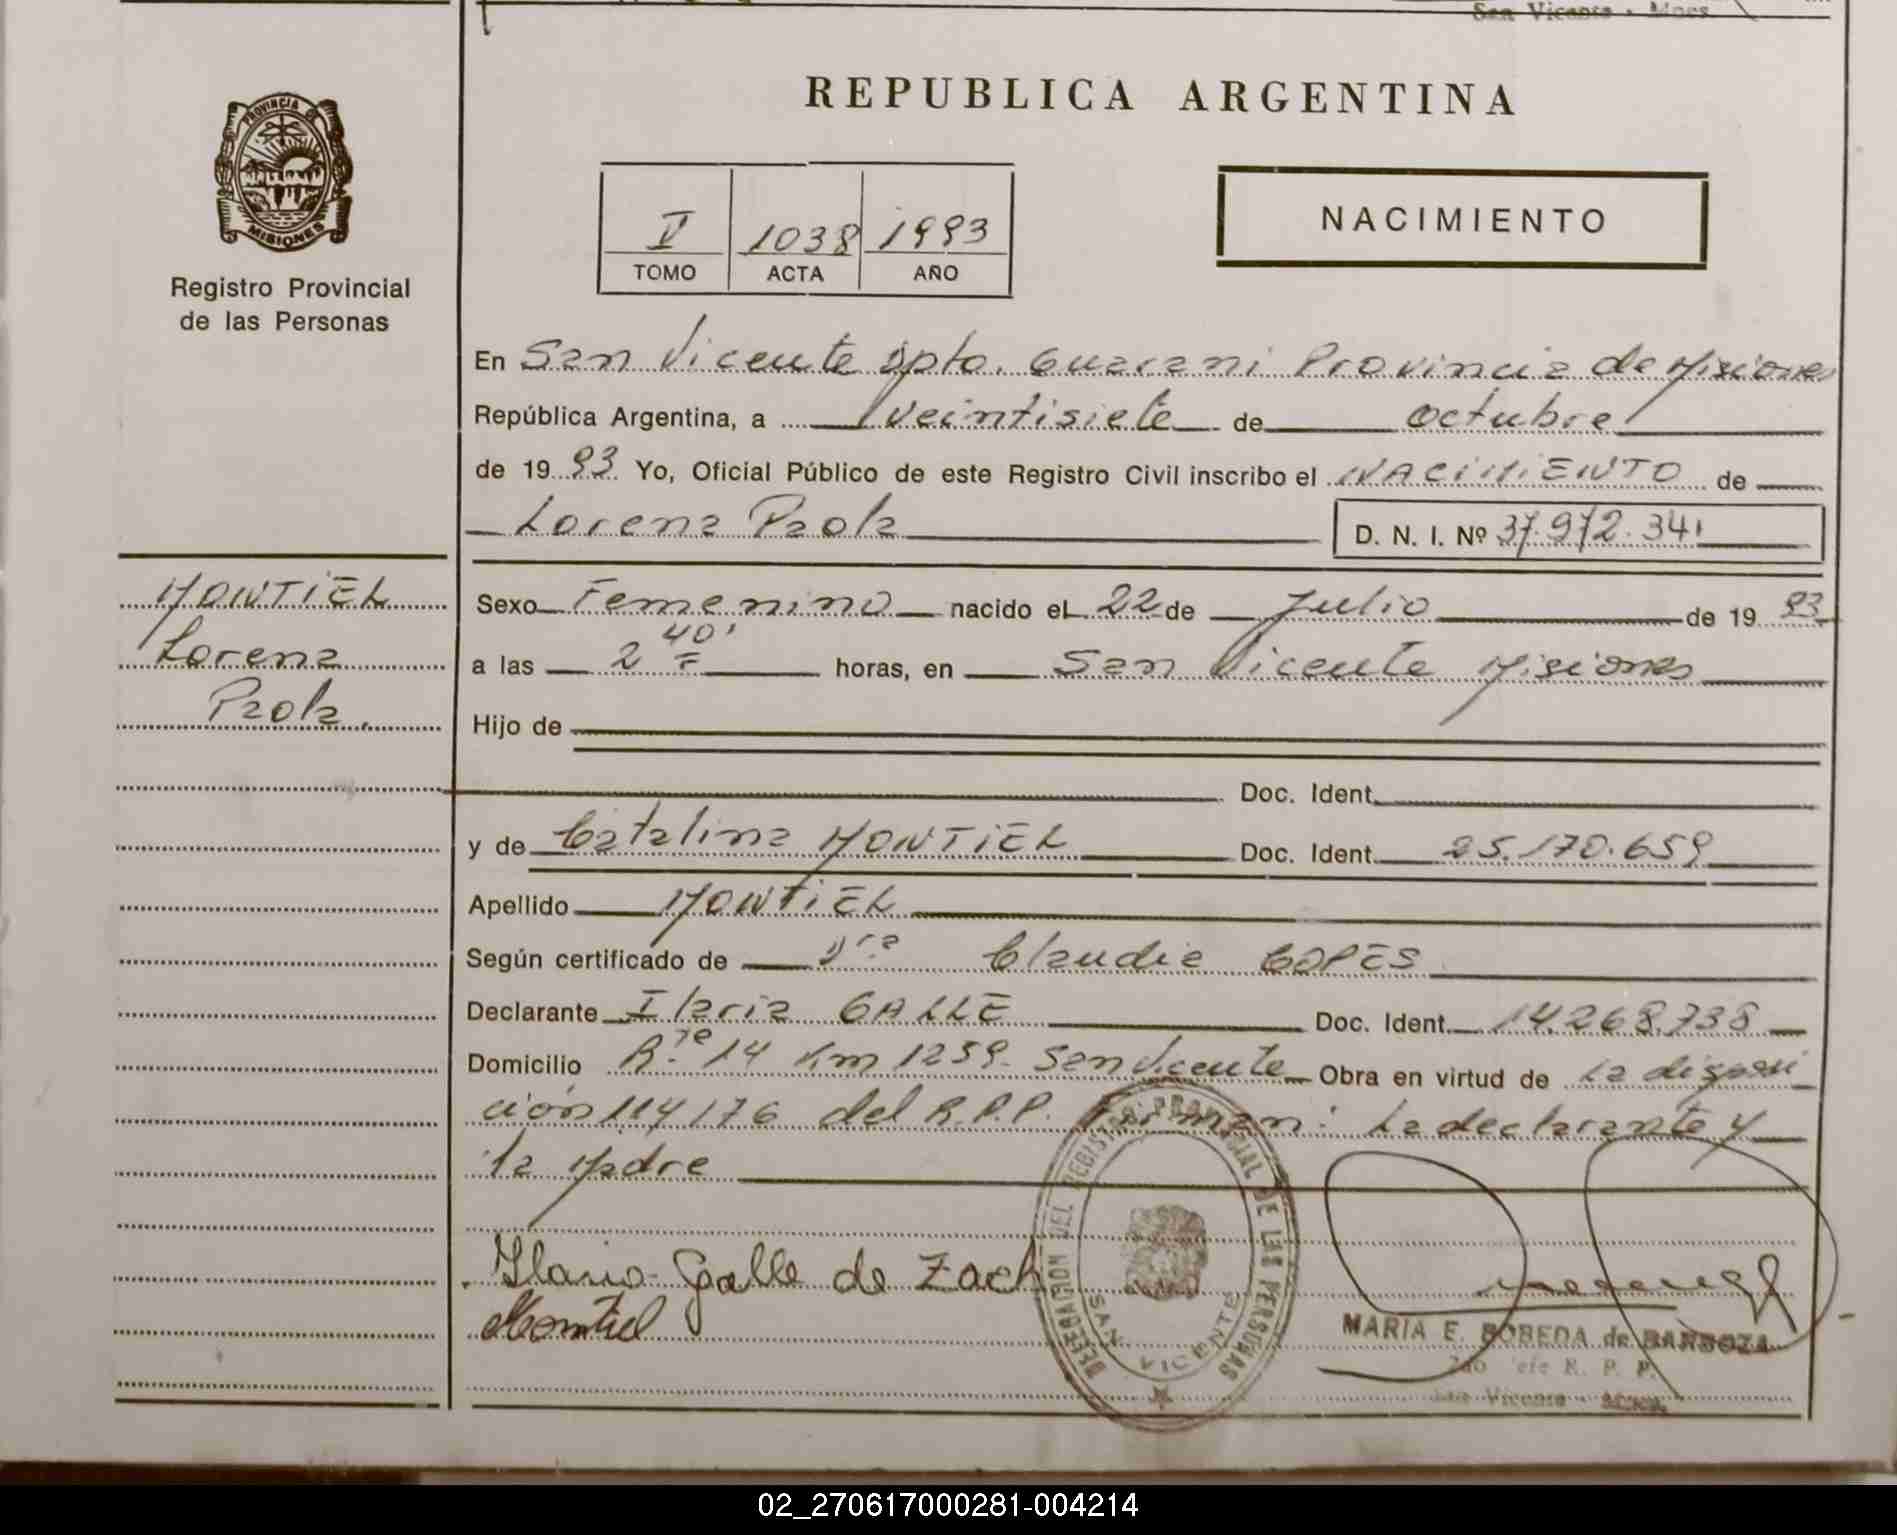 San Vicente - Mnes.
REPUBLICA ARGENTINA
PROVINCIA DE
MISIONES
Registro Provincial
de las Personas
V 1038 1993
TOMO ACTA AÑO
NACIMIENTO
En San Vicente Dpto. Guarani Provincia de Misiones
República Argentina, a veintisiete de octubre
de 19 93 Yo, Oficial Público de este Registro Civil inscribo el NACIMIENTO de
Lorena Paola D. N. I. Nº 37.972.341
MONTIEL
Lorena
Paola.
Sexo Femenino nacido el 22 de Julio de 19 93
a las 2 40' horas, en San Vicente Misiones
Hijo de
Doc. Ident.
y de Catalina MONTIEL Doc. Ident. 25.170.659
Apellido MONTIEL
Según certificado de Dra Claudia COPES
Declarante Ilaria GALLE Doc. Ident. 14.268.738
Domicilio R.ta 14 Km 1259. San Vicente Obra en virtud de La disposi
ción 114/76 del R.P.P. Firman: La declarante y
la Madre
Ilaria Galle de Zach
Montiel
DELEGACION DEL REGISTRO PROVINCIAL DE LAS PERSONAS
SAN VICENTE
MARIA E. BOBEDA de BARBOZA
2do Jefe R. P. P.
San Vicente - Mnes.
02_270617000281-004214